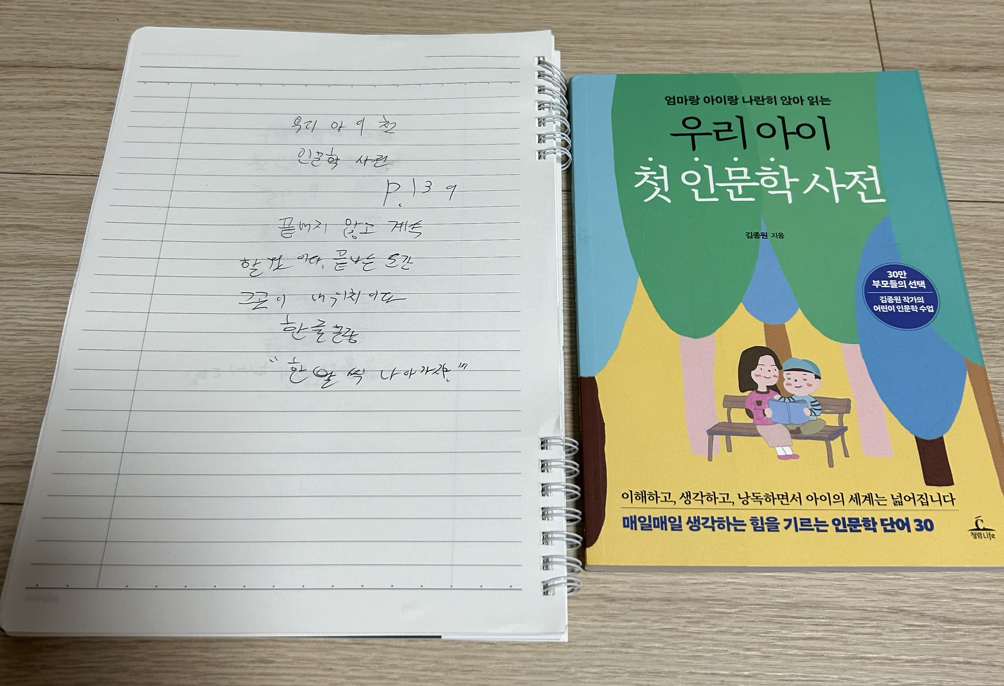 우리 아이 첫
인문학 사전
P.139
끝내지 않고 계속
할 것이다. 끝나는 순간
그곳이 내 위치이다
한글
"한 발 씩 나아가자"
엄마랑 아이랑 나란히 앉아 읽는
우리 아이
첫 인문학 사전
김종원 지음
30만
부모들의 선택
김종원 작가의
어린이 인문학 수업
이해하고, 생각하고, 낭독하면서 아이의 세계는 넓어집니다
매일매일 생각하는 힘을 기르는 인문학 단어 30
청림Life